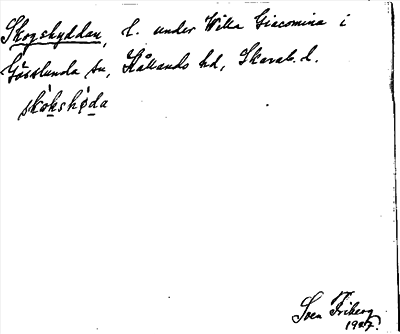 Skogshyddan, l. under Villa Giacomina i
Gösslunda sn, Kållands hd, Skarab. l.
skòkshỳda
Sven Friberg
1927.